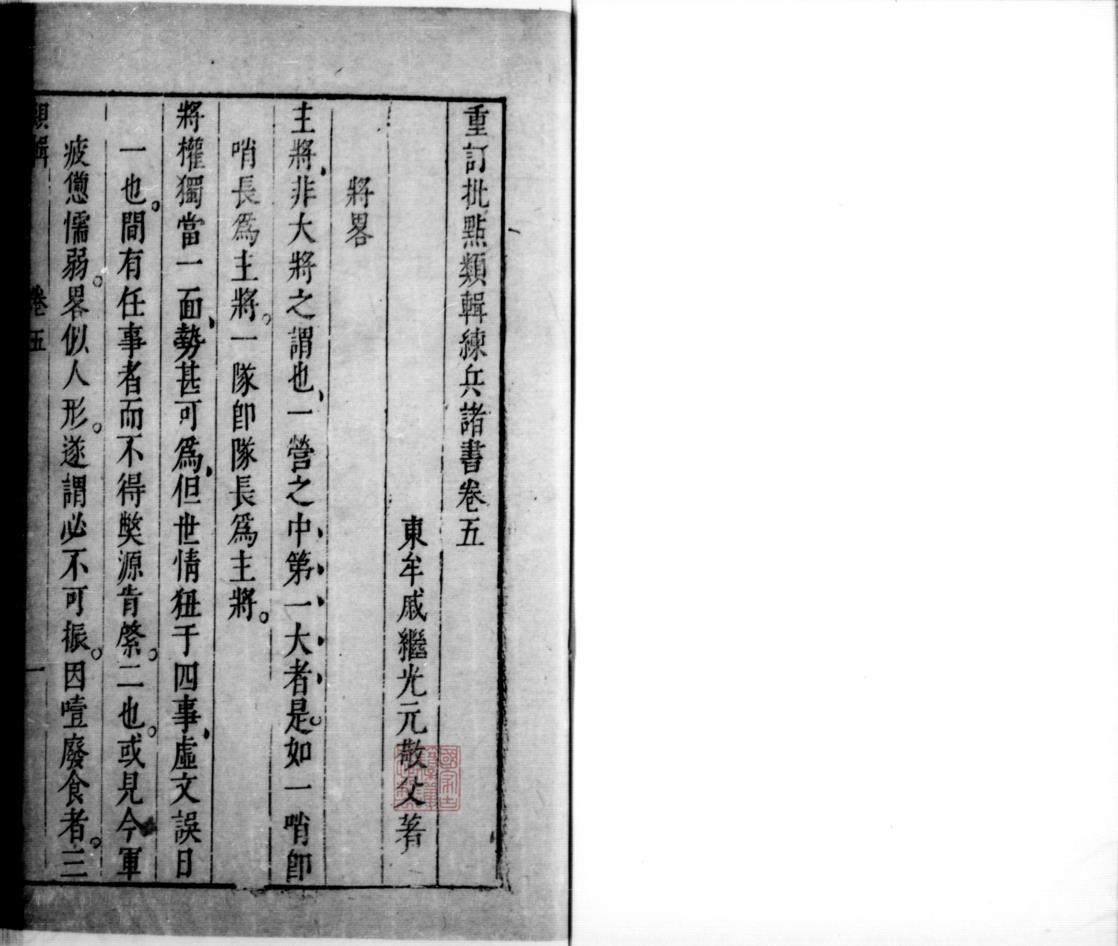 重訂批點類輯練兵諸書卷五
東牟戚繼光元敬父著
將畧
主將非大將之謂也一營之中第一大者是如一哨卽
哨長爲主將一隊卽隊長爲主將
將權獨當一面勢甚可爲但世情狃于四事虛文誤日
一也間有任事者而不得獘源肯綮二也或見今軍
疲憊懦弱畧似人形遂謂必不可振因噎廢食者三
類輯 卷五 一